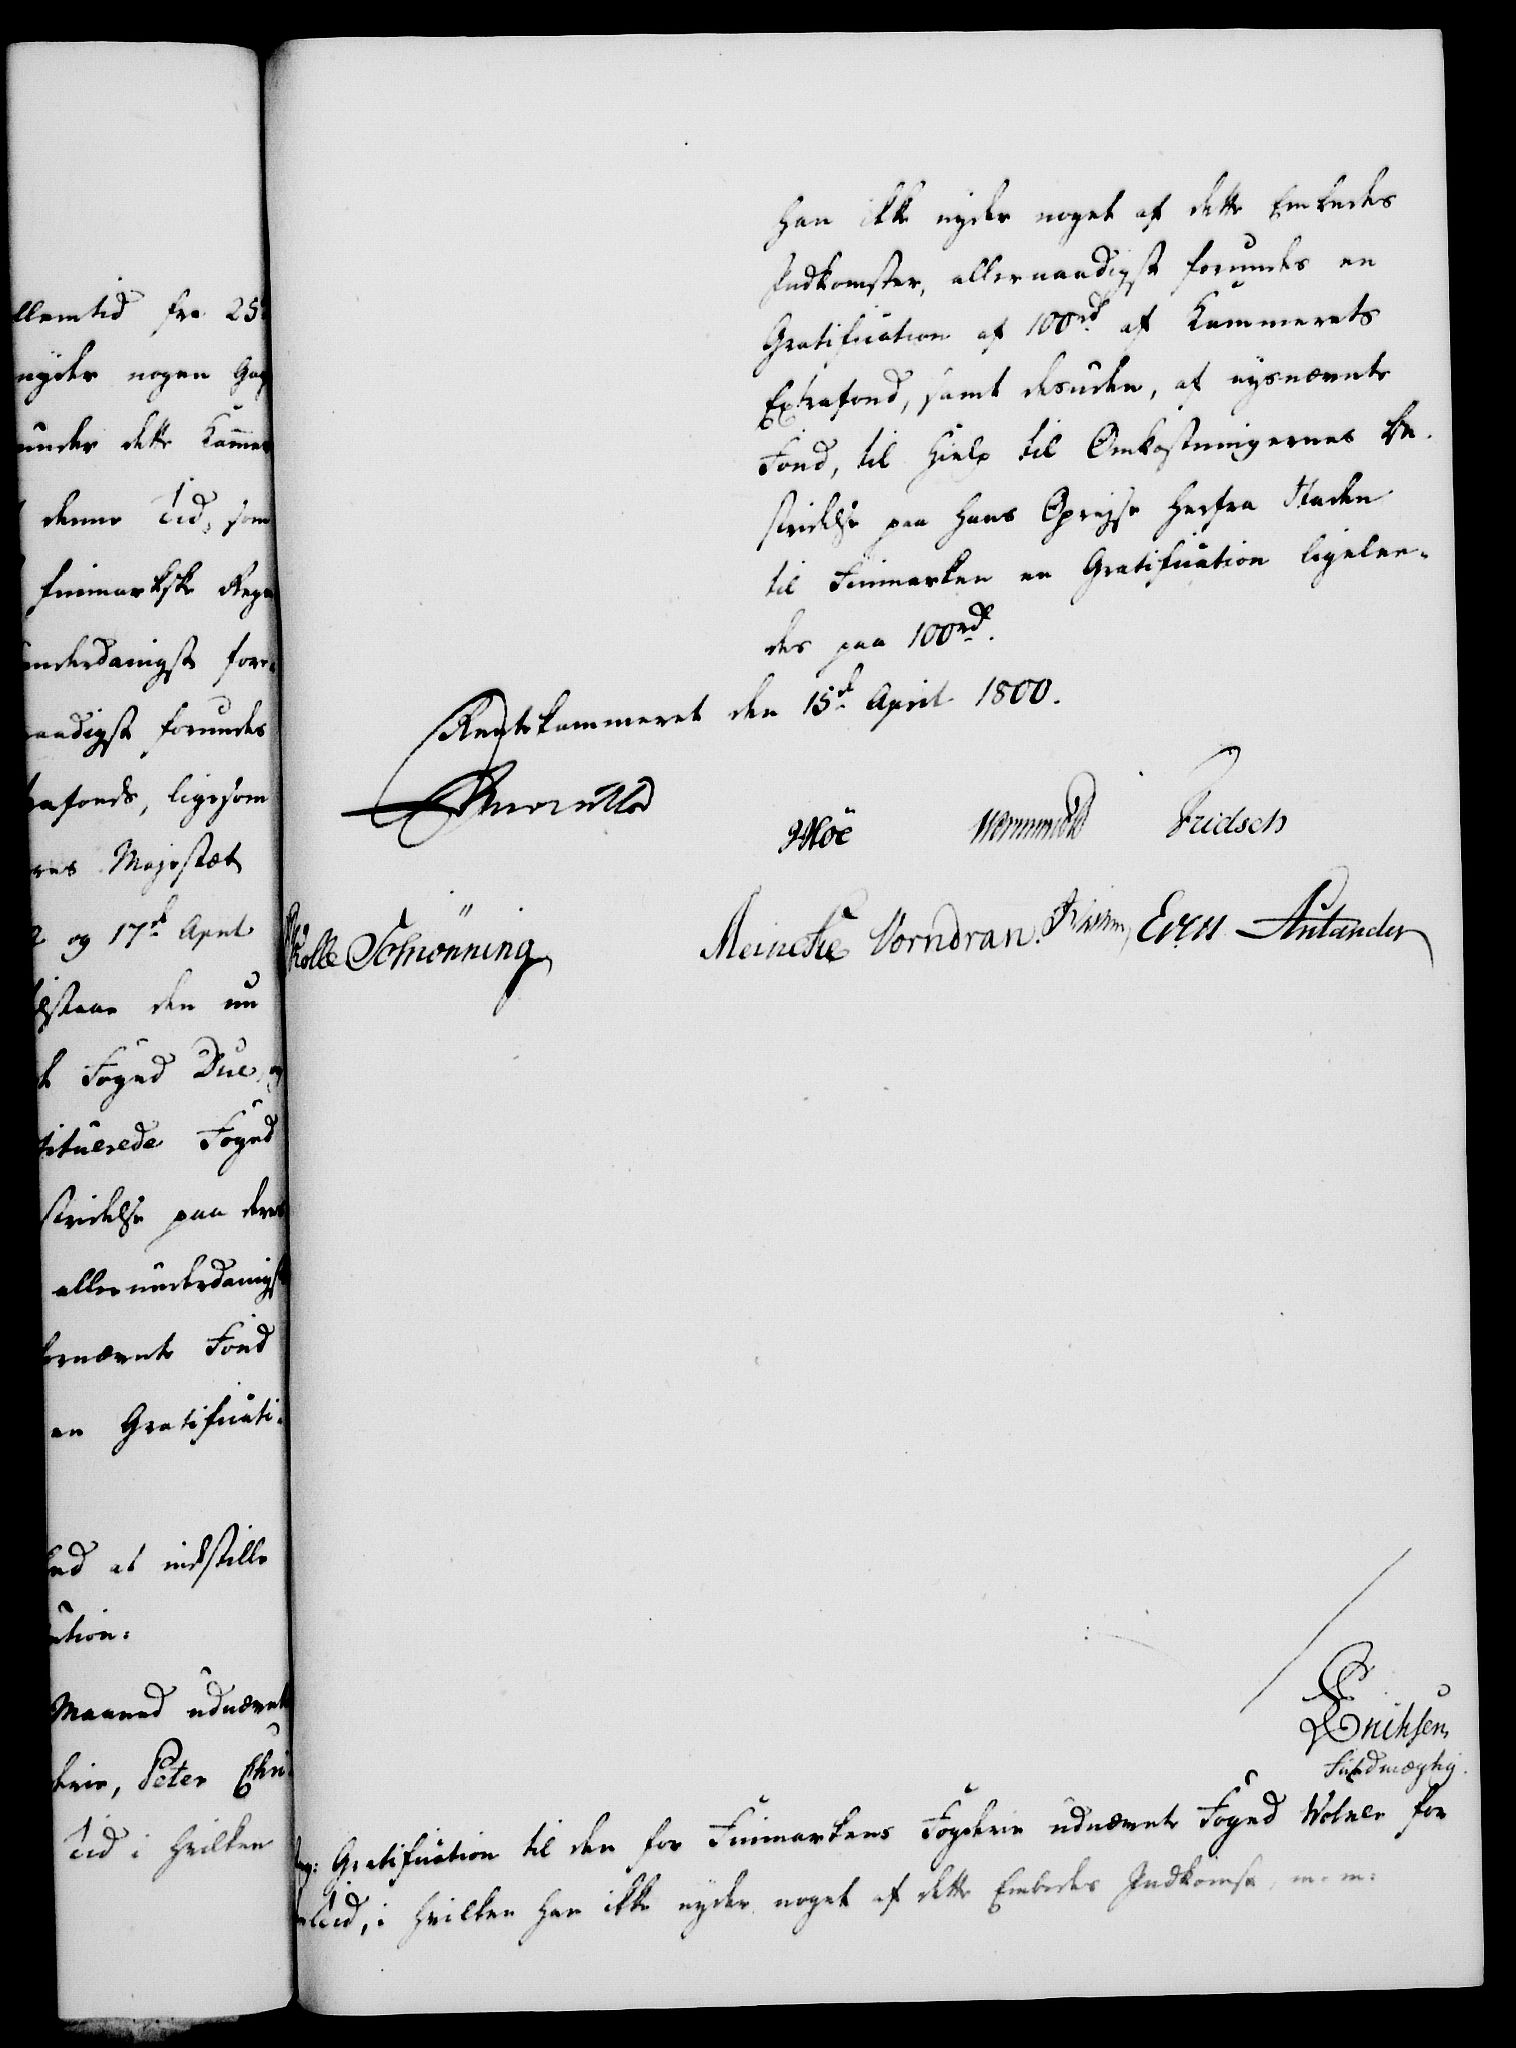 llemtid fra 25
nyder nogen Gag
under dette Kammer
denne Tid, som
finmarkske Rege
underdanigst fore
naadigst forundes
rafonds, ligesom
res Majestæt
og 17d April
tilstaae den nu
Foged Due, og
tituerede Foged
stridelse paa deres
allerunderdanigst
bernævnte Fond
en Gratificati-
at indstille
ution:
Maaned udnævnte
derie, Peter Chri-
Tid i hvilken
han ikke nyder noget af dette Embedes
Indkomster, allernaadigst forundes en
Gratification af 100rd. af Kammerets
Extrafond, samt desuden, af nysnævnte
Fond, til Hielp til Omkostningernes be-
stridelse paa hans Opreyse herfra Staden
til Finmarken en Gratification ligelee-
des paa 100rd.
Rentekammeret den 15d April 1800.
Moe Wormskiold Fridsch
Schiönning Meincke Vorndran. Even
Erichsen
Fuldmægtig.
Gratification til den for Finmarkens Fogderie udnævnte Foged Wolner for
Tid, i hvilken han ikke nyder noget af dette Embedes Indkomst, m. m: